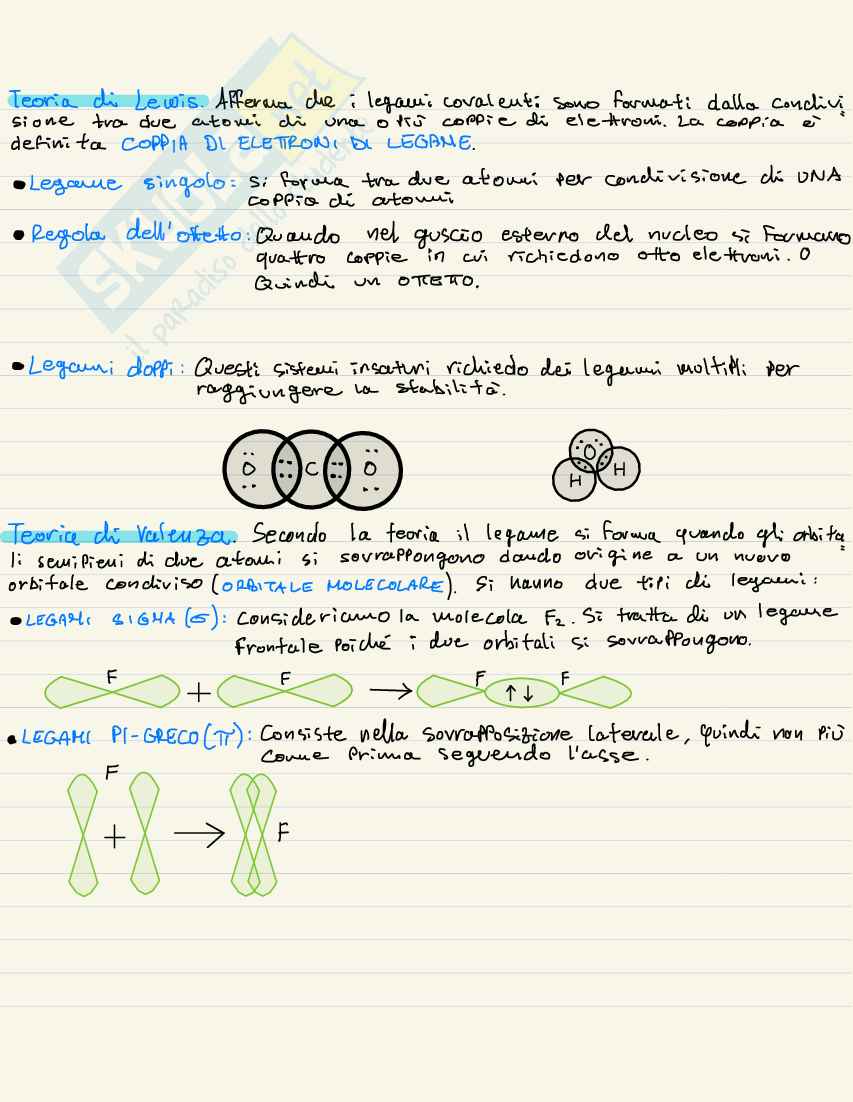 Teoria di Lewis. Afferma che i legami covalenti sono formati dalla condivi
sione tra due atomi di una o più coppie di elettroni. La coppia è
definita COPPIA DI ELETRONI DI LEGAME.
• Legame singolo: Si forma tra due atomi per condivisione di UNA
coppia di atomi
• Regola dell'ottetto: Quando nel guscio esterno del nucleo si formano
quattro coppie in cui richiedono otto elettroni. O
Quindi un OTTETTO.
• Legami doppi: Questi sistemi insaturi richiedo dei legami multipli per
raggiungere la stabilità.
O C O
O
H H
Teoria di Valenza. Secondo la teoria il legame si forma quando gli orbita
li semipieni di due atomi si sovrappongono dando origine a un nuovo
orbitale condiviso (ORBITALE MOLECOLARE). Si hanno due tipi di legami:
• LEGAMI SIGMA (σ): Consideriamo la molecola F₂. Si tratta di un legame
frontale poiché i due orbitali si sovrappongono.
F + F → F ↑↓ F
• LEGAMI PI-GRECO (π): Consiste nella sovrapposizione laterale, quindi non più
come prima seguendo l'asse.
F
+ → F
SKUOLA.net
il paradiso dello studente